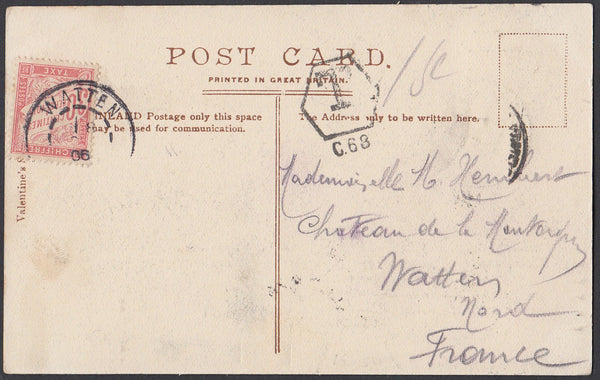 POST CARD.
PRINTED IN GREAT BRITAIN.
INLAND Postage only this space
may be used for communication.
The Address only to be written here.
Valentine's
POSTES
TAXE
CHIFFRE
WATTEN
06
T
C.68
Mademoiselle H.
Chateau de la
Watten
Nord
France